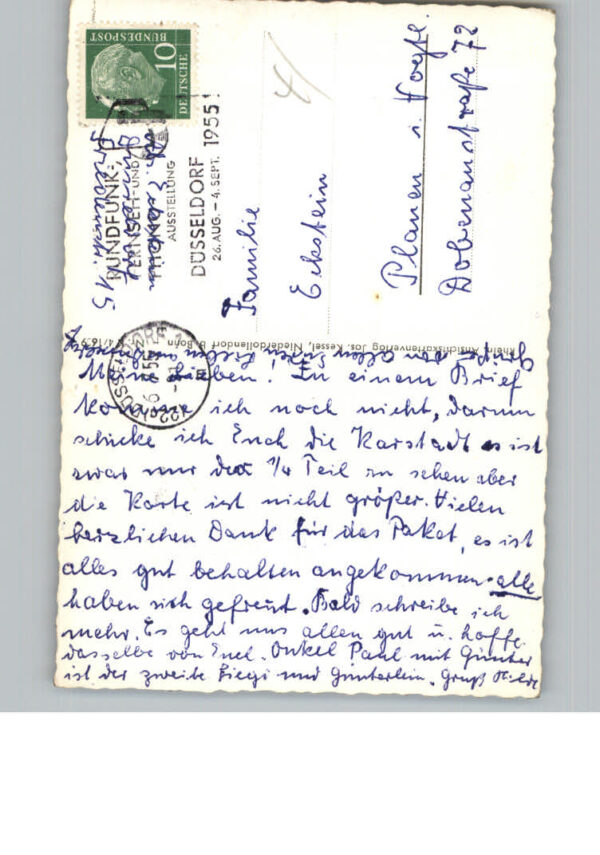 10
DEUTSCHE
BUNDESPOST
RUNDFUNK-
FERNSEH-UND
AUSSTELLUNG
DÜSSELDORF
26. AUG. – 4. SEPT. 1955!
Düsseldorf
15
Familie
Eckstein
Plauen i. Vogtl.
Dobenaustraße 72
Rhein. Ansichtskartenverlag Jos. Kessel, Niederdollendorf b. Bonn
Meine Lieben! Zu einem Brief
komme ich noch nicht, darum
schicke ich Euch die Karstadt es ist
zwar nur der 1/4 Teil zu sehen aber
die Karte ist nicht größer. Vielen
herzlichen Dank für das Paket, es ist
alles gut behalten angekommen. alle
haben sich gefreut. Bald schreibe ich
mehr. Es geht uns allen gut u. hoffe
dasselbe von Euch. Onkel Paul mit Günter
ist der zweite Siegi und Günterlein. Gruß Hilde